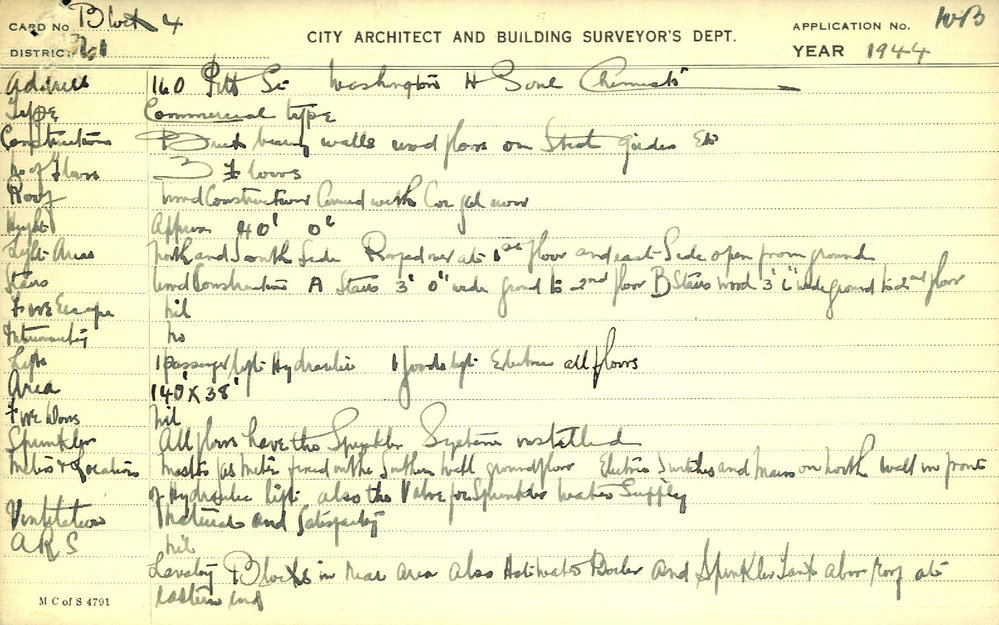 CARD No Block 4
CITY ARCHITECT AND BUILDING SURVEYOR'S DEPT.
APPLICATION No. WB
DISTRICT
YEAR 1944
Address 160 Pitt St Washington H Soul Chemists
Type Commercial type
Construction Brick bearing walls wood floors on Steel Girders Etc
No of Floors 3 Floors
Roof Wood Construction Covered with Cor gal iron
Height Approx 40' 0"
Light Areas North and South Side Roofed over at 1st floor and east Side open from ground
Stairs Wood Construction A Stairs 3' 0" wide ground to 2nd floor B Stairs wood 3' 6" wide ground to 2nd floor
Fire Escape nil
no
Lifts 1 passenger lift Hydraulic 1 goods lift Electric all floors
Area 140' X 38'
Fire Doors nil
Sprinkler All floors have the Sprinkler System installed
Meters & Location Master Gas Meter fixed on the Southern Wall ground floor Electric Switches and Mains on North wall in front
of Hydraulic lift also the Valve for Sprinkler Water Supply
Ventilation Natural and Satisfactory
A R S nil
Lavatory Blocks in rear area also Hot water Boiler and Sprinkler Tank above roof at
M C of S 4791 eastern end